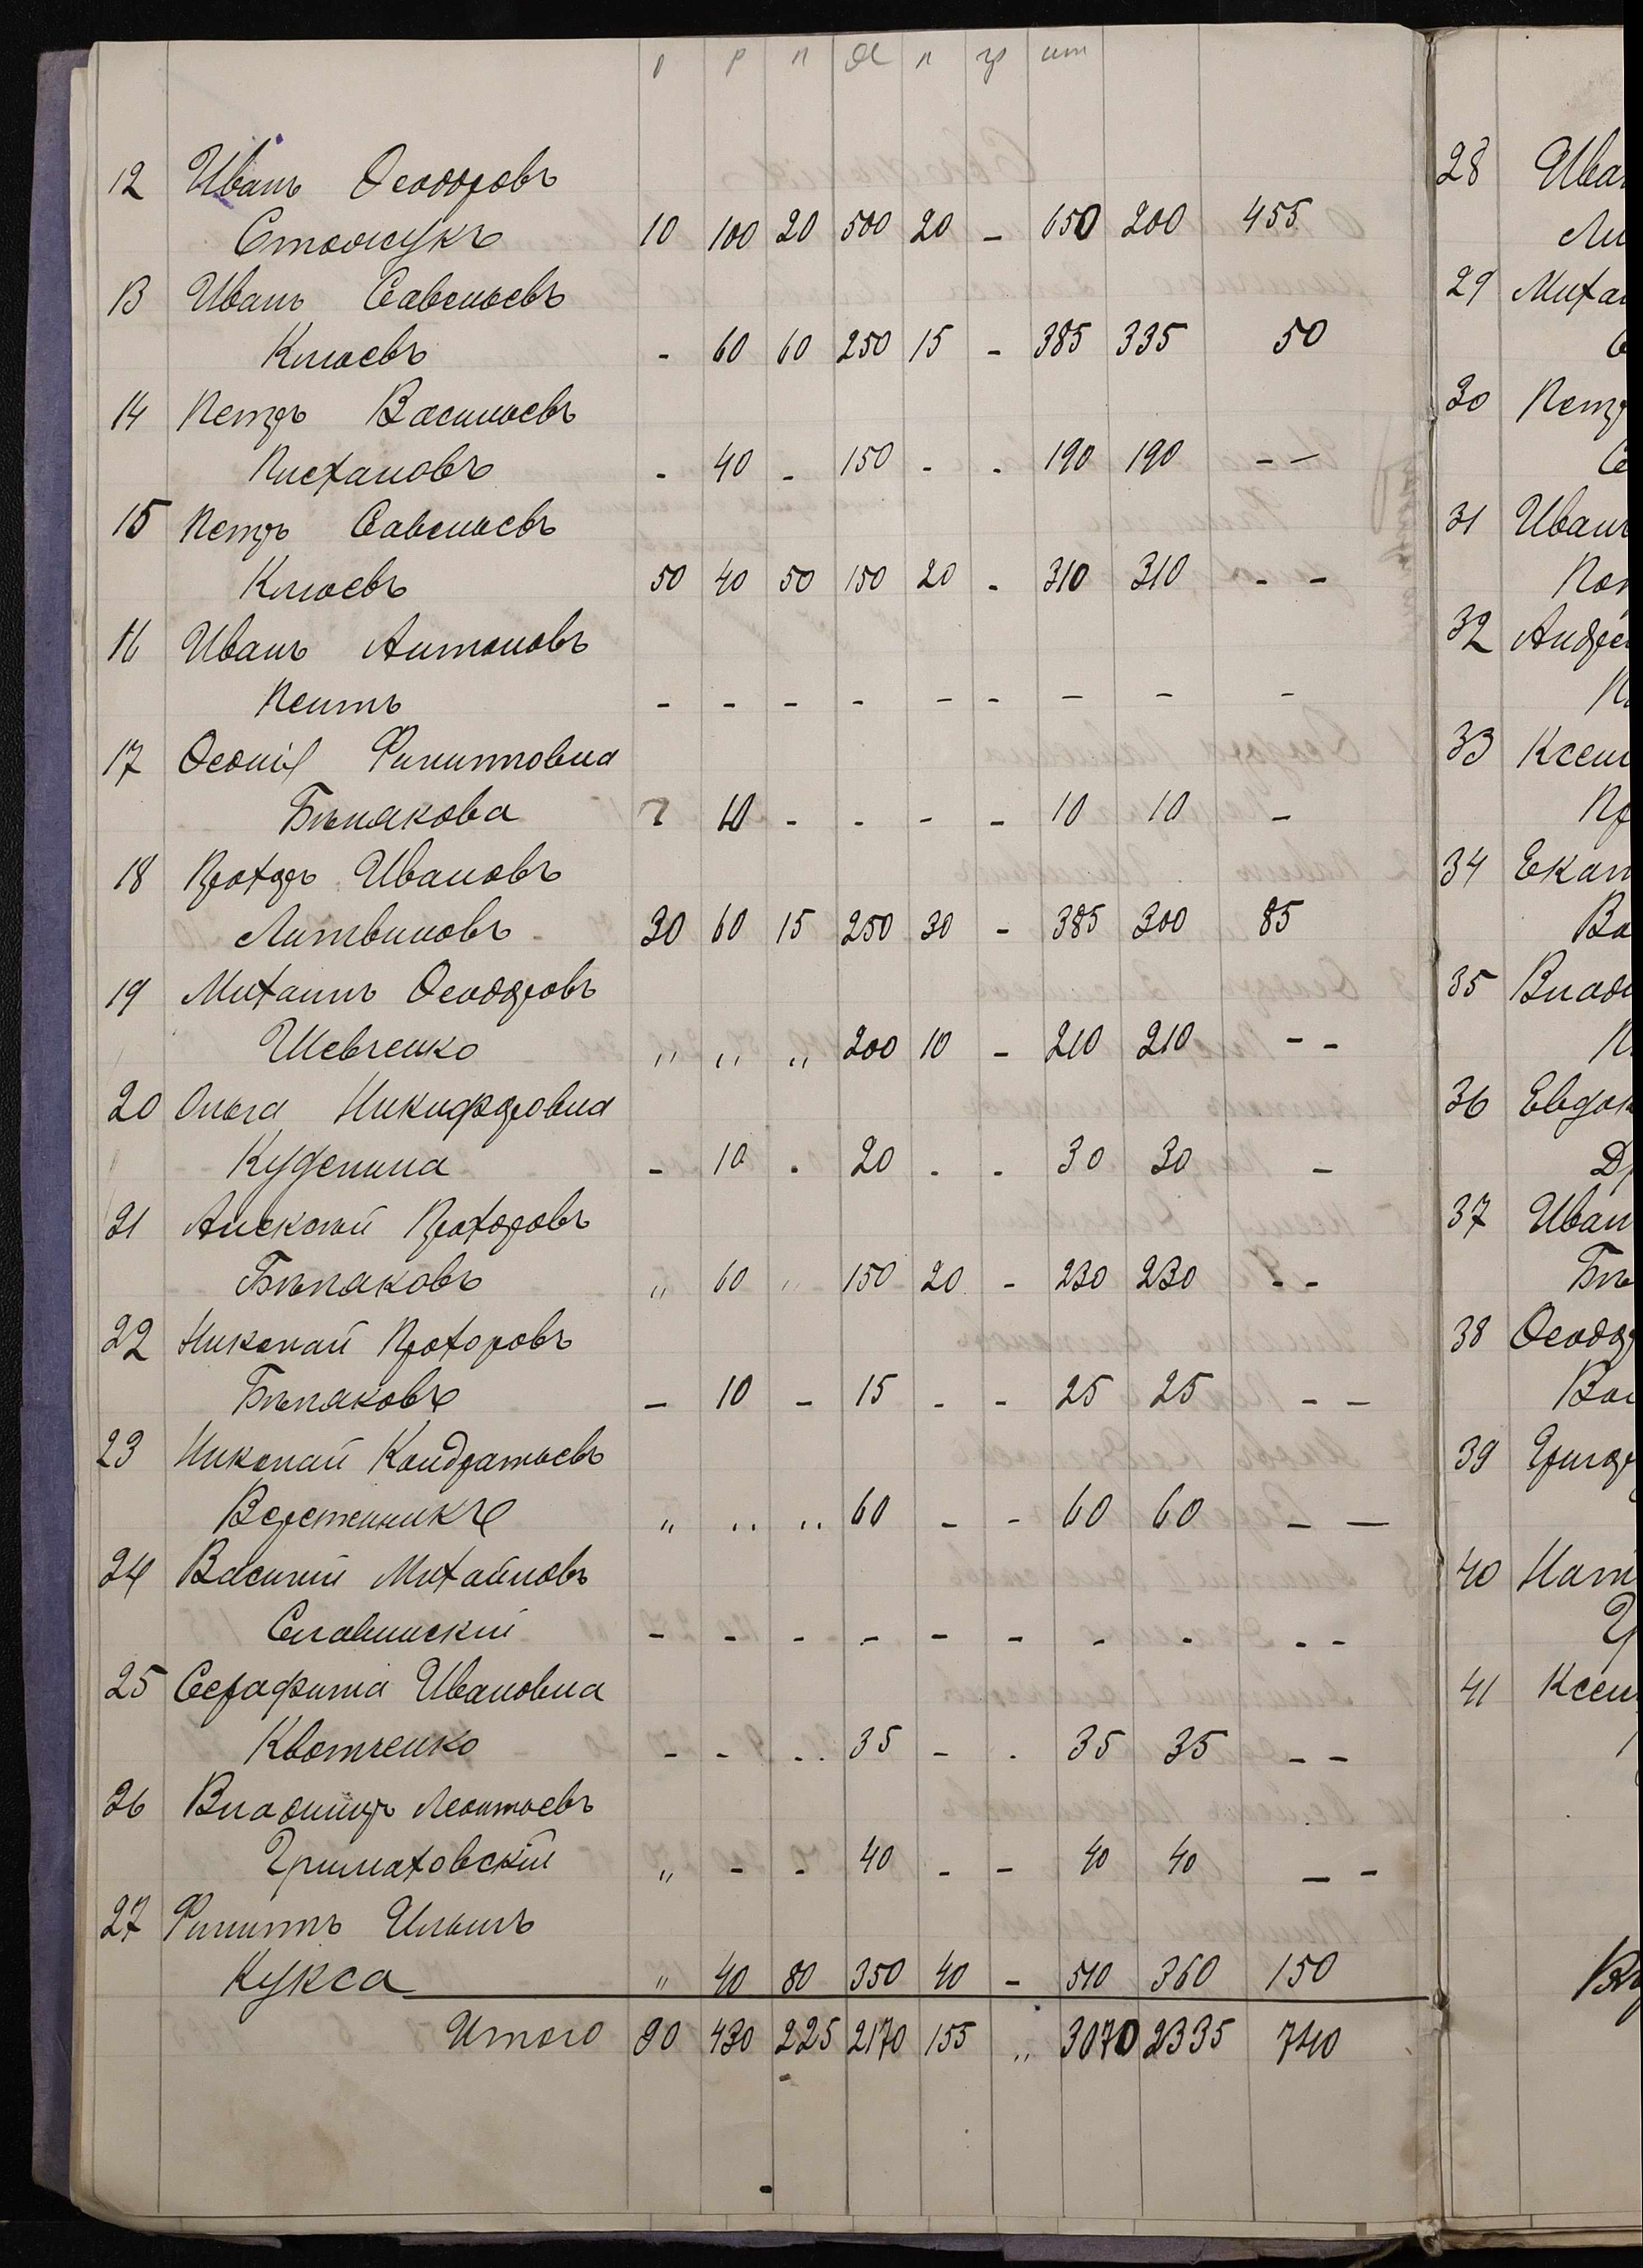 р р п ж п гр ит
12 Иванъ Ѳеодоровъ
Стольсукъ 10 100 20 500 20 - 650 200 455
13 Иванъ Савельевъ
Клюевъ - 60 60 250 15 - 385 335 50
14 Петръ Васильевъ
Писхановъ - 40 - 150 - - 190 190 - -
15 Петръ Савельевъ
Клюевъ 50 40 50 150 20 - 310 310 - -
16 Иванъ Антоновъ
Пентъ - - - - - - - - -
17 Ѳеонія Филипповна
Бѣлякова 10 - - - - 10 10 -
18 Прохоръ Ивановъ
Литвиновъ 30 60 15 250 30 - 385 300 85
19 Михаилъ Ѳеодоровъ
Шевченко „ „ „ 200 10 - 210 210 - -
20 Ольга Никифоровна
Куделина - 10 - 20 - - 30 30 -
21 Алексѣй Прохоровъ
Бѣлаковъ „ 60 „ 150 20 - 230 230 - -
22 Николай Прохоровъ
Бѣлаковъ - 10 - 15 - - 25 25 - -
23 Николай Кондратьевъ
Веретенникъ „ „ „ 60 - - 60 60 - -
24 Василій Михайловъ
Славинскій - - - - - - - - - -
25 Серафима Ивановна
Квотченко - - - 35 - - 35 35 - -
26 Владиміръ Леонтьевъ
Гримаховскій „ - - 40 - - 40 40 - -
27 Филиппъ Ильинъ
Кукса „ 40 80 350 40 - 510 360 150
Итого 90 430 225 2170 155 „ 3070 2335 740
28 Иван
Ли
29 Михаи
30 Петр
31 Иванъ
32 Андре
33 Ксен
Пр
34 Екат
Ва
35 Влади
36 Евдок
37 Иван
Бѣ
38 Ѳеодо
39 Григор
40 Ната
41 Ксен